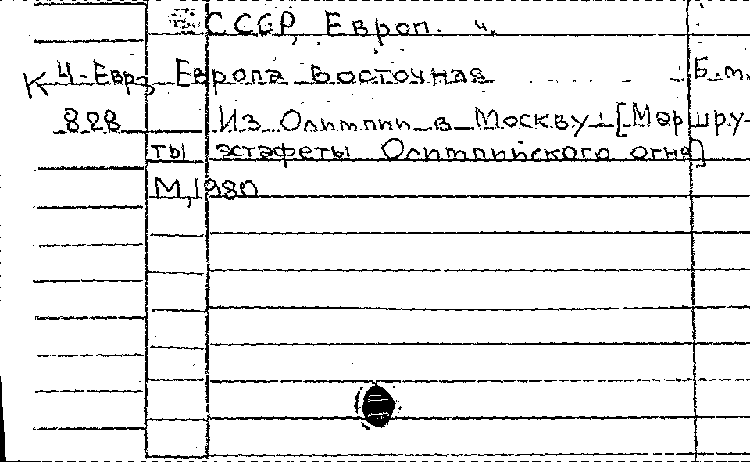 СССР, Европ. ч.
К 4-Евр3 Европа Восточная Б.м.
828 Из Олимпии в Москву! [Маршру-
ты эстафеты Олимпийского огня]
М, 1980